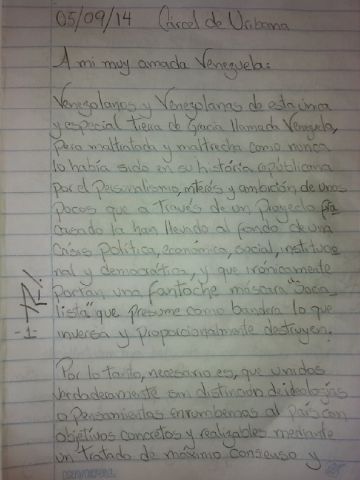 05/09/14 Cárcel de Uribana
A mi muy amada Venezuela:
Venezolanos y Venezolanas de esta única
y especial tierra de Gracia llamada Venezuela,
pera maltratada y maltrecha como nunca
lo había sido en su história républicana
por el personalismo, interés y ambición de unos
pocos que a través de un Proyecto fra
casado la han llevado al fondo de una
Crisis política, económica, social, institucio
nal y democrática, y que irónicamente
portan una fantoche máscara "Socia
lista" que presume como bandera lo que
inversa y proporcionalmente destruyen.
-1-
Por lo tanto, necesario es, que unidos
verdaderamente sin distinción de ideologías
o Pensamientos enrumbemos al país con
objetivos concretos y realizables mediante
un tratado de máximo consenso y